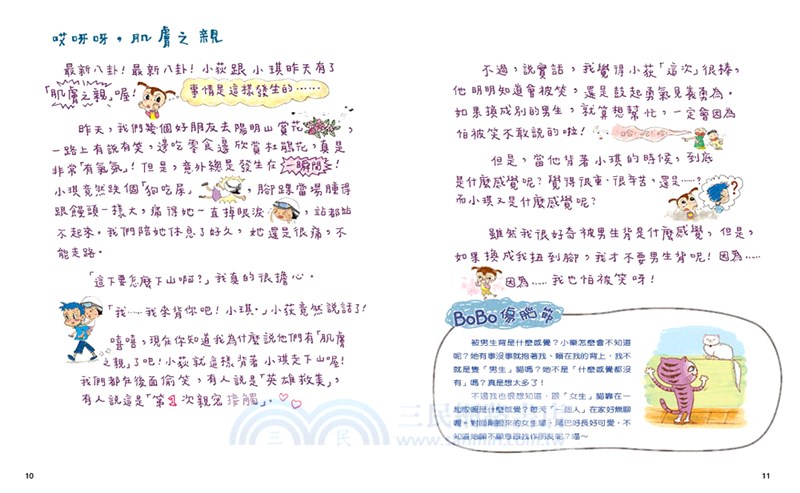 哎呀呀，肌膚之親
最新八卦！最新八卦！小荻跟小琪昨天有了
「肌膚之親」喔！事情是這樣發生的……
昨天，我們幾個好朋友去陽明山賞花，
一路上有說有笑，邊吃零食邊欣賞杜鵑花，真是
非常「有氣氛」！但是，意外總是發生在瞬間！
小琪竟然跌個「狗吃屎」，腳踝當場腫得
跟饅頭一樣大，痛得她一直掉眼淚，站都站
不起來。我們陪她休息了好久，她還是很痛，不
能走路。
「這下要怎麼下山啊？」我真的很擔心。
「我……我來背你吧！小琪。」小荻竟然說話了！
嘻嘻，現在你知道我為什麼說他們有「肌膚
之親」了吧！小荻就這樣背著小琪走下山喔！
我們都在後面偷笑，有人說是「英雄救美」，
有人說這是「第1次親密接觸」。
10
不過，說實話，我覺得小荻「這次」很棒，
他明明知道會被笑，還是鼓起勇氣見義勇為。
如果換成別的男生，就算想幫忙，一定會因為
怕被笑不敢說的啦！
但是，當他背著小琪的時候，到底
是什麼感覺呢？覺得很重、很辛苦，還是……？
而小琪又是什麼感覺呢？
雖然我很好奇被男生背是什麼感覺，但是，
如果換成我扭到腳，我才不要男生背呢！因為……
因為……我也怕被笑呀！
BoBo傷腦筋
被男生背是什麼感覺？小樂怎麼會不知道
呢？她有事沒事就抱著我、賴在我的背上，我不
就是隻「男生」貓嗎？她不是「什麼感覺都沒
有」嗎？真是想太多了！
不過我也很想知道，跟「女生」貓靠在一
起磨蹭是什麼感覺？每天「一個人」在家好無聊
喔。對面剛搬來的女生貓，尾巴好長好可愛，不
知道她願不願意跟我作朋友呢？喵～
三民網路書店
三 民
www.sanmin.com.tw
11